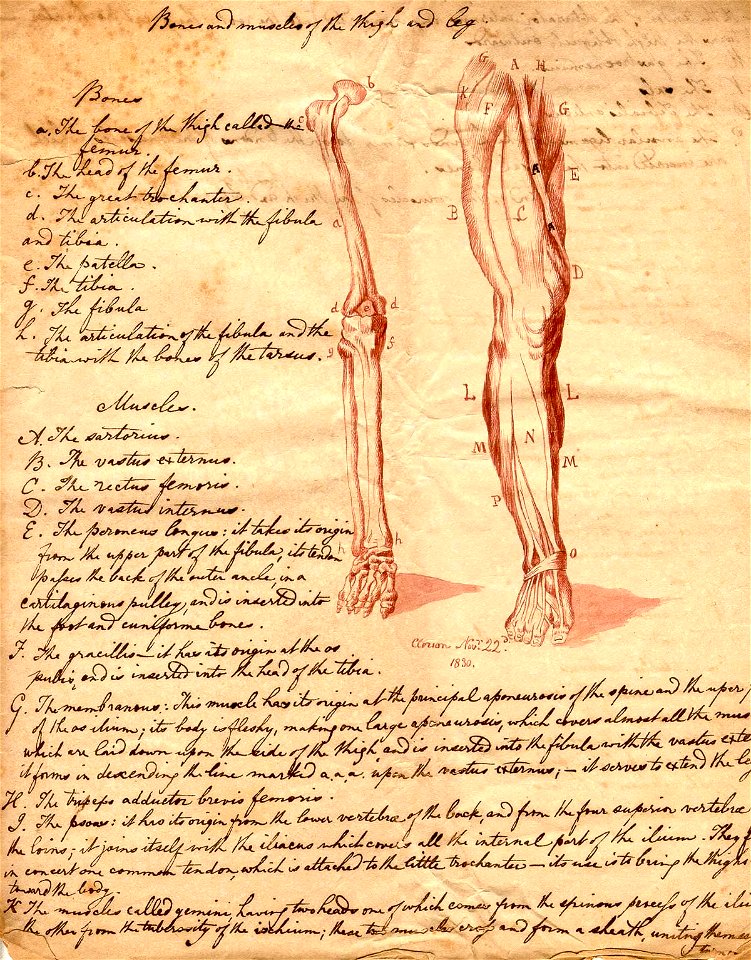 Bones and muscles of the thigh and leg
Bones
a. The bone of the thigh called the
femur.
b. The head of the femur.
c. The great trochanter.
d. The articulation with the fibula
and tibia.
e. The patella.
f. The tibia.
g. The fibula
h. The articulation of the fibula and the
tibia with the bones of the tarsus.
Muscles.
A. The sartorius.
B. The vastus externus.
C. The rectus femoris.
D. The vastus internus.
E. The peroneus longus: it takes its origin
from the upper part of the fibula, its tendon
passes the back of the outer ancle, in a
cartilaginous pulley, and is inserted into
the foot and cuneiforme bones.
F. The gracillis — it has its origin at the os
pubis, and is inserted into the head of the tibia.
G. The membranous: This muscle has its origin at the principal aponeurosis of the spine and the upper
of the os ilium; its body is fleshy, making one large aponeurosis, which covers almost all the mus
which are laid down upon the side of the thigh, and is inserted into the fibula with the vastus exte
it forms in descending the line marked a.a.a. upon the vastus externus; — it serves to extend the le
H. The triceps adductor brevis femoris.
J. The psoas: it has its origin from the lower vertebræ of the back, and from the four superior vertebræ
the loins; it joins itself with the iliacus which covers all the internal part of the ilium. They
in concert one common tendon, which is attached to the little trochanter — its use is to bring the thighs
toward the body.
K The muscles called gemini, having two heads one of which comes from the spinous process of the ili
the other from the tuberosity of the ischium; these two muscles cross and form a sheath, uniting themse
b
c
a
d e d
g f
h h
G A H
K F G
A E
B L A
D
L L
M N M
P
O
Nov. 22d
1830.